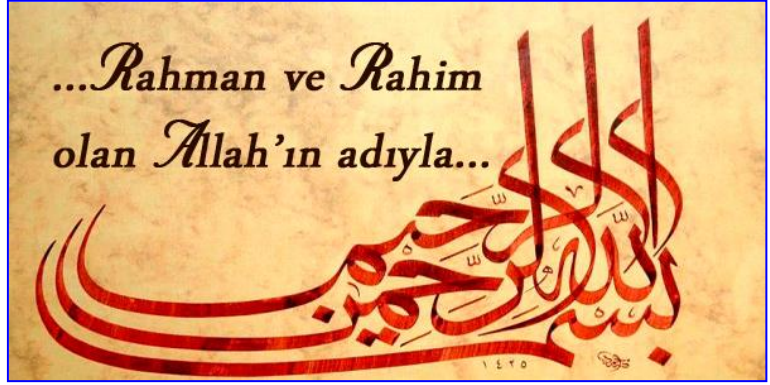 ...Rahman ve Rahim
olan Allah’ın adıyla...
بسم الله الرحمن الرحيم
١٤٢٥